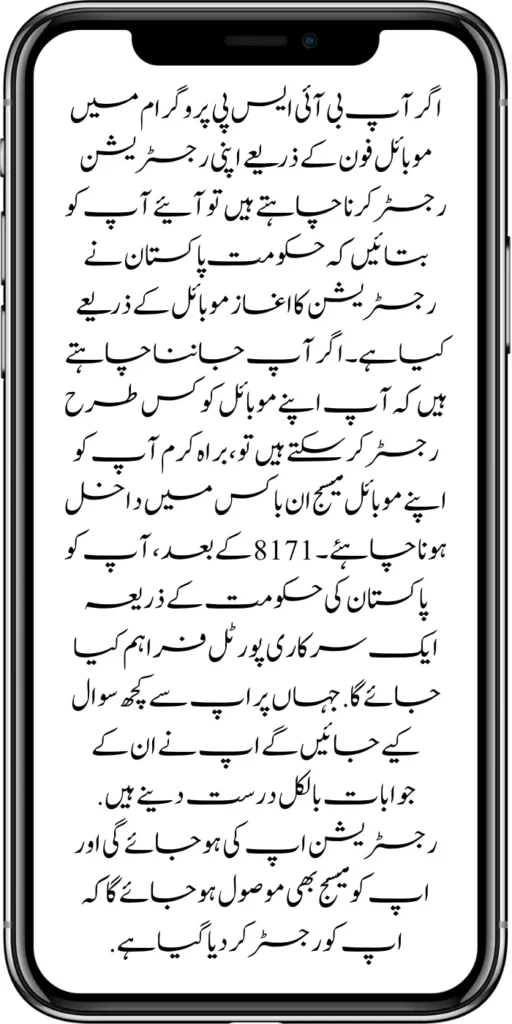 اگر آپ بی آئی ایس پی پروگرام میں
موبائل فون کے ذریعے اپنی رجسٹریشن
رجسٹر کرنا چاہتے ہیں تو آیئے آپ کو
بتائیں کہ حکومت پاکستان نے
رجسٹریشن کا اغاز موبائل کے ذریعے
کیا ہے۔ اگر آپ جاننا چاہتے
ہیں کہ آپ اپنے موبائل کو کس طرح
رجسٹر کر سکتے ہیں تو، براہ کرم آپ کو
اپنے موبائل میسج ان باکس میں داخل
ہونا چاہئے۔ 8171 کے بعد، آپ کو
پاکستان کی حکومت کے ذریعہ
ایک سرکاری پورٹل فراہم کیا
جائے گا. جہاں پر اپ سے کچھ سوال
کیے جائیں گے اپ نے ان کے
جوابات بالکل درست دینے ہیں.
رجسٹریشن اپ کی ہو جائے گی اور
اپ کو میسج بھی موصول ہو جائے گا کہ
اپ کو رجسٹر کر دیا گیا ہے.